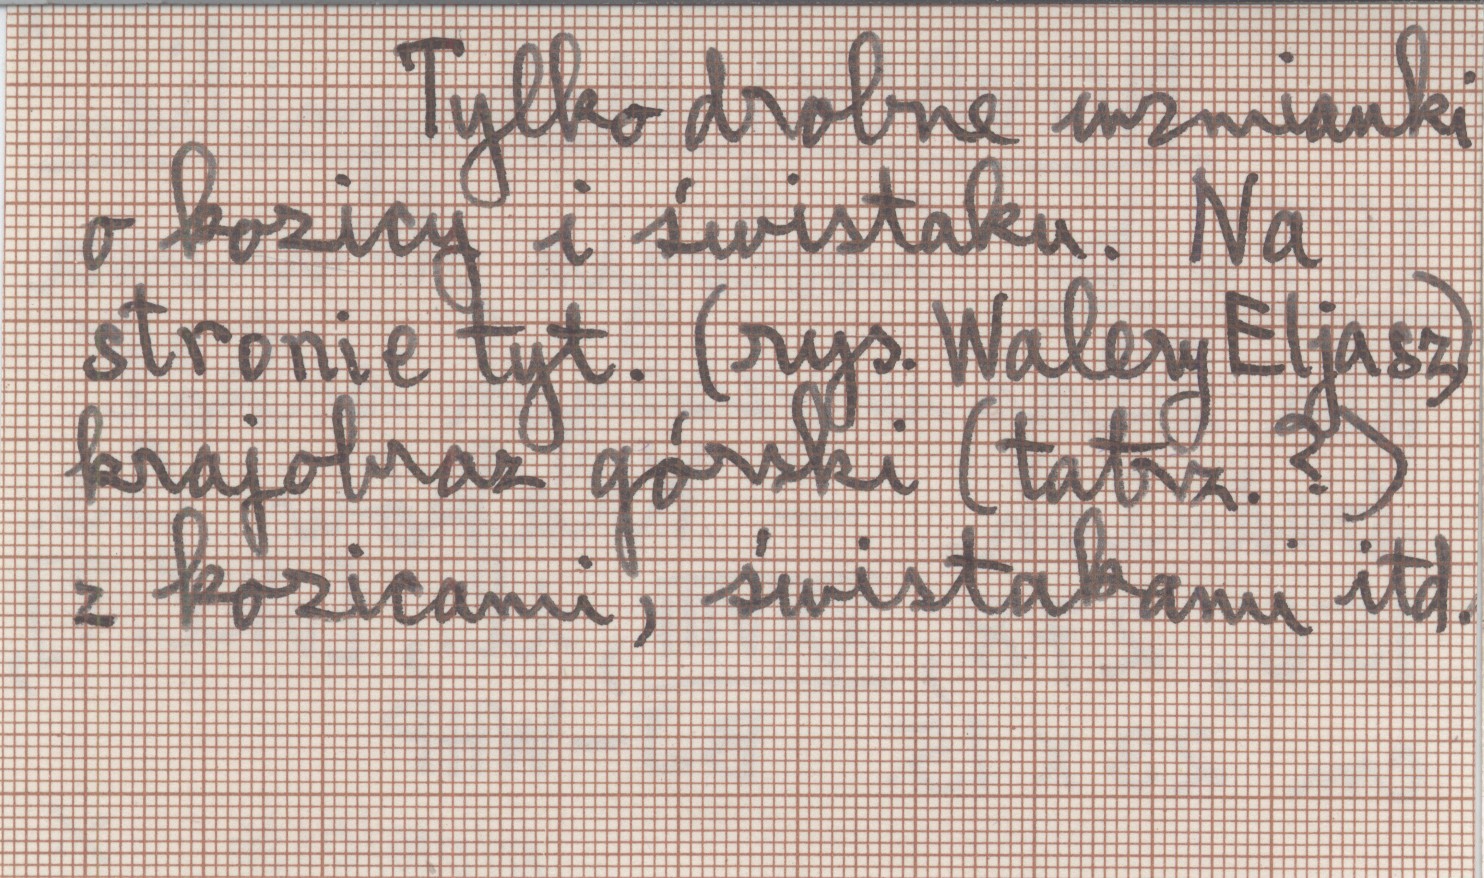 Tylko drobne wzmianki
o kozicy i świstaku. Na
stronie tyt. (rys. Walery Eljasz)
krajobraz górski (tatrz. ?)
z kozicami, świstakami itd.